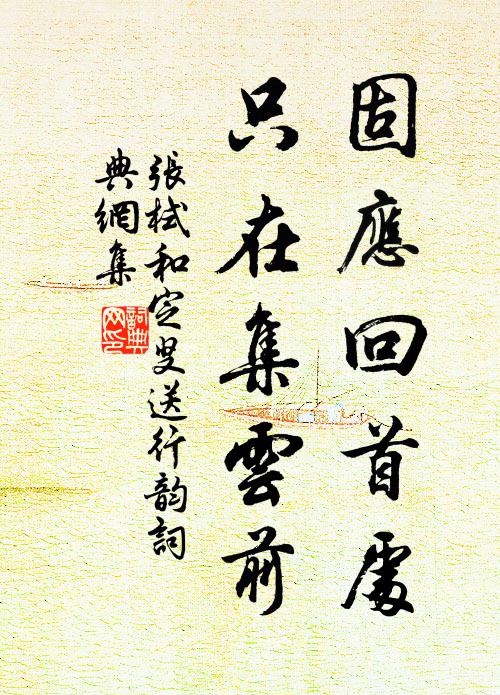 固應回首處
只在集雲前
張栻和定叟送行韵詞
典網集
詞典
网印